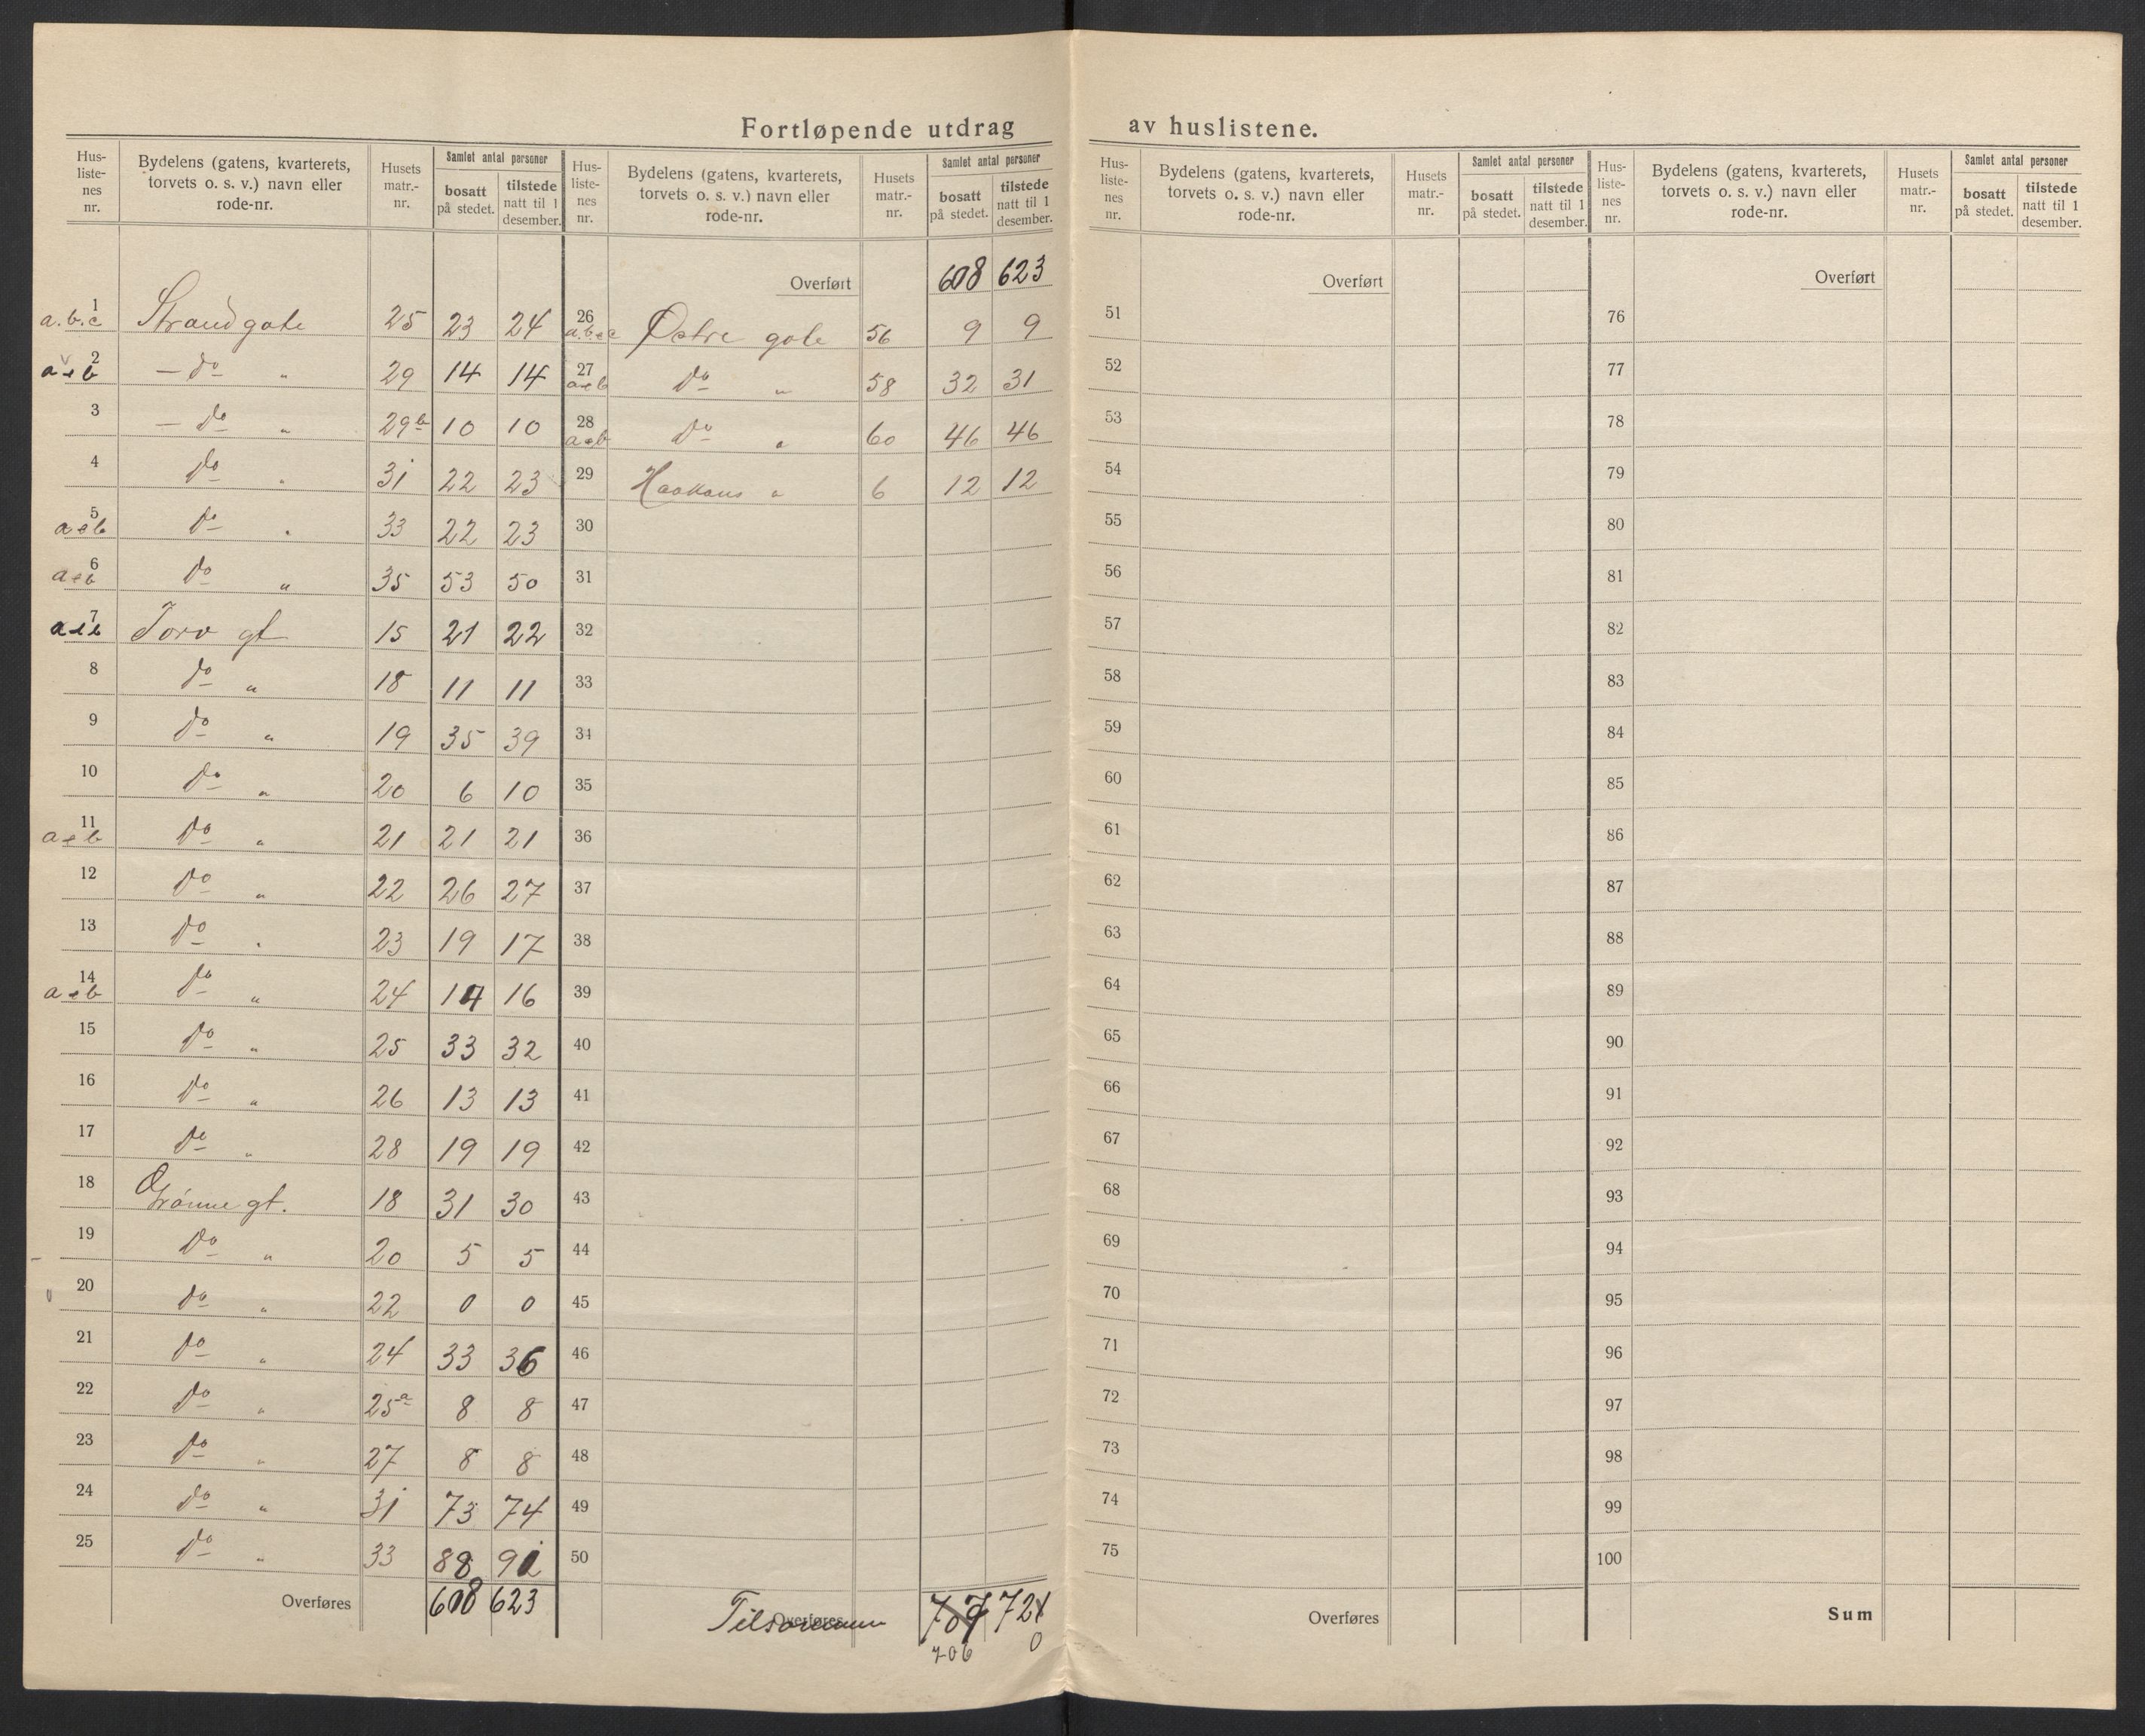 Fortløpende utdrag av huslistene.
Hus-listenes nr. Bydelens (gatens, kvarterets, torvets o. s. v.) navn eller rode-nr. Husets matr.-nr. Samlet antal personer bosatt på stedet. tilstede natt til 1 desember.
1 a.b.c Strandgate 25 23 24
2 a e b — do " 29 14 14
3 — do " 29b 10 10
4 do " 31 22 23
5 a e b do " 33 22 23
6 a e b do " 35 53 50
7 a e b Torv gt 15 21 22
8 do " 18 11 11
9 do " 19 35 39
10 do " 20 6 10
11 a e b do " 21 21 21
12 do " 22 26 27
13 do " 23 19 17
14 a e b do " 24 14 16
15 do " 25 33 32
16 do " 26 13 13
17 do " 28 19 19
18 Grønne gt. 18 31 30
19 do " 20 5 5
20 do " 22 0 0
21 do " 24 33 36
22 do " 25a 8 8
23 do " 27 8 8
24 do " 31 73 74
25 do " 33 88 91
Overføres 608 623
Hus-listenes nr. Bydelens (gatens, kvarterets, torvets o. s. v.) navn eller rode-nr. Husets matr.-nr. Samlet antal personer bosatt på stedet. tilstede natt til 1 desember.
Overført 608 623
26 a.b.e c Østre gate 56 9 9
27 a e b do " 58 32 31
28 a e b do " 60 46 46
29 Haakons " 6 12 12
30
31
32
33
34
35
36
37
38
39
40
41
42
43
44
45
46
47
48
49
50
Overføres Tilsammen 707 721
706 0
Hus-listenes nr. Bydelens (gatens, kvarterets, torvets o. s. v.) navn eller rode-nr. Husets matr.-nr. Samlet antal personer bosatt på stedet. tilstede natt til 1 desember.
Overført
51
52
53
54
55
56
57
58
59
60
61
62
63
64
65
66
67
68
69
70
71
72
73
74
75
Overføres
Hus-listenes nr. Bydelens (gatens, kvarterets, torvets o. s. v.) navn eller rode-nr. Husets matr.-nr. Samlet antal personer bosatt på stedet. tilstede natt til 1 desember.
Overført
76
77
78
79
80
81
82
83
84
85
86
87
88
89
90
91
92
93
94
95
96
97
98
99
100
Sum